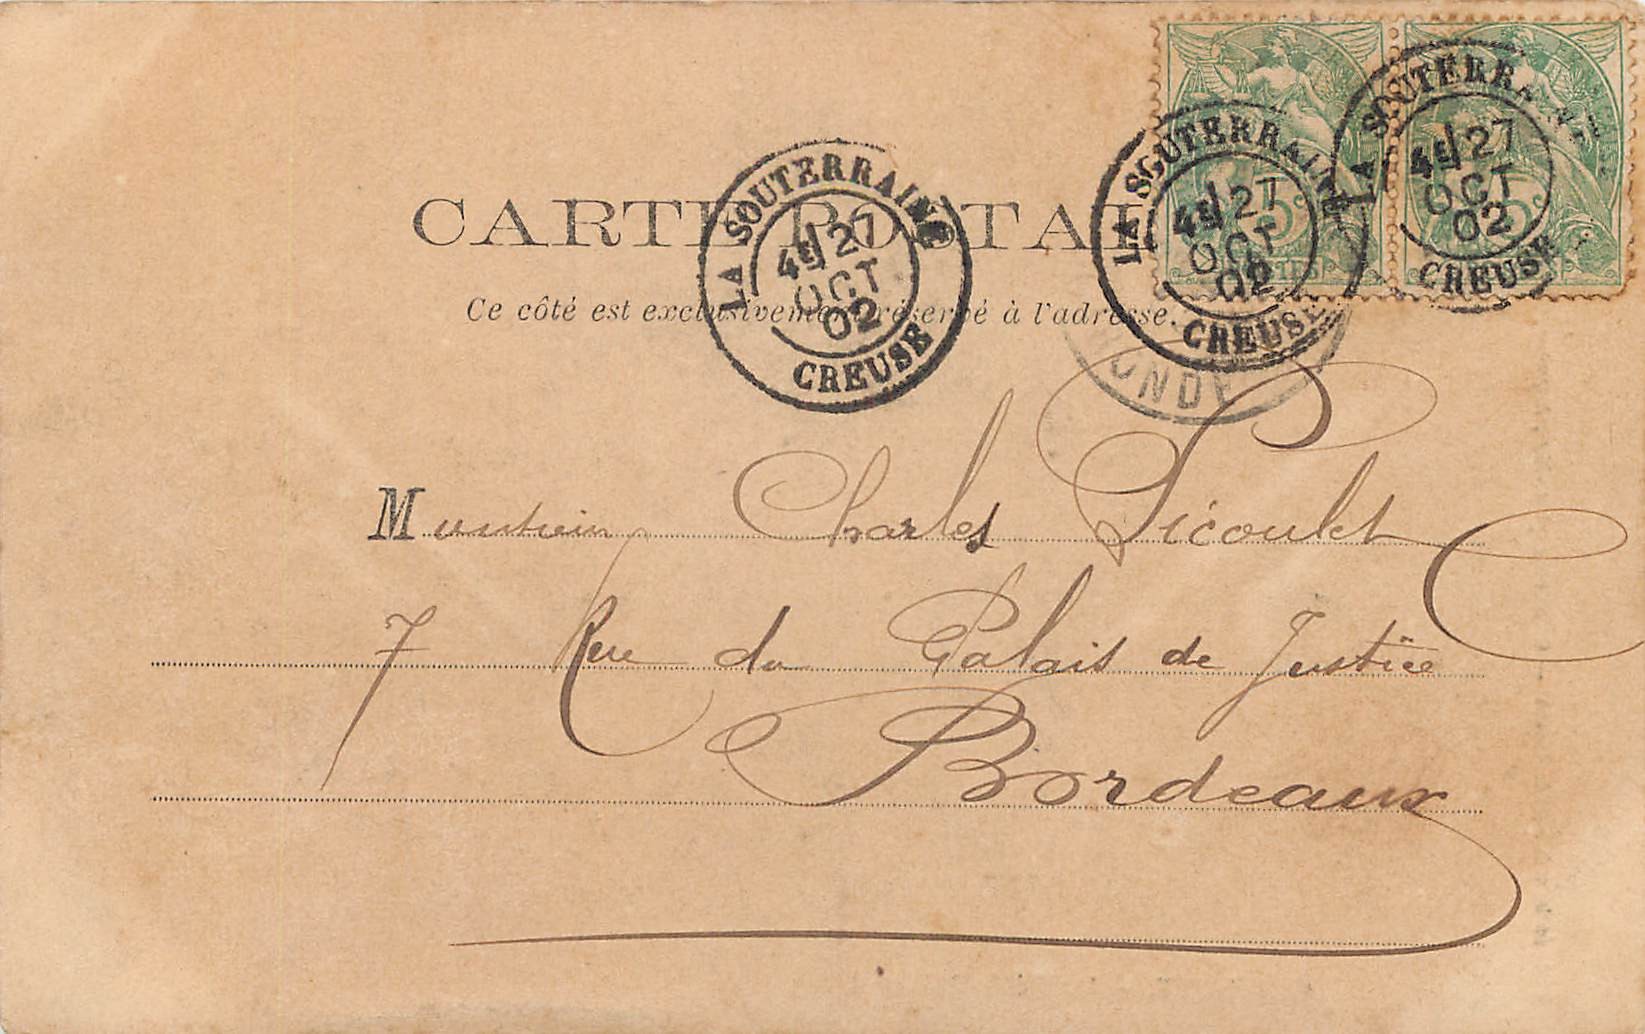 CARTE POSTALE
Ce côté est exclusivement réservé à l'adresse.
LA SOUTERRAINE
4E 27
OCT
02
CREUSE
LA SOUTERRAINE
4E 27
OCT
02
CREUSE
LA SOUTERRAINE
4E 27
OCT
02
CREUSE
5c
5c
Monsieur Charles Picoulet
7 Rue du Palais de Justice
Bordeaux